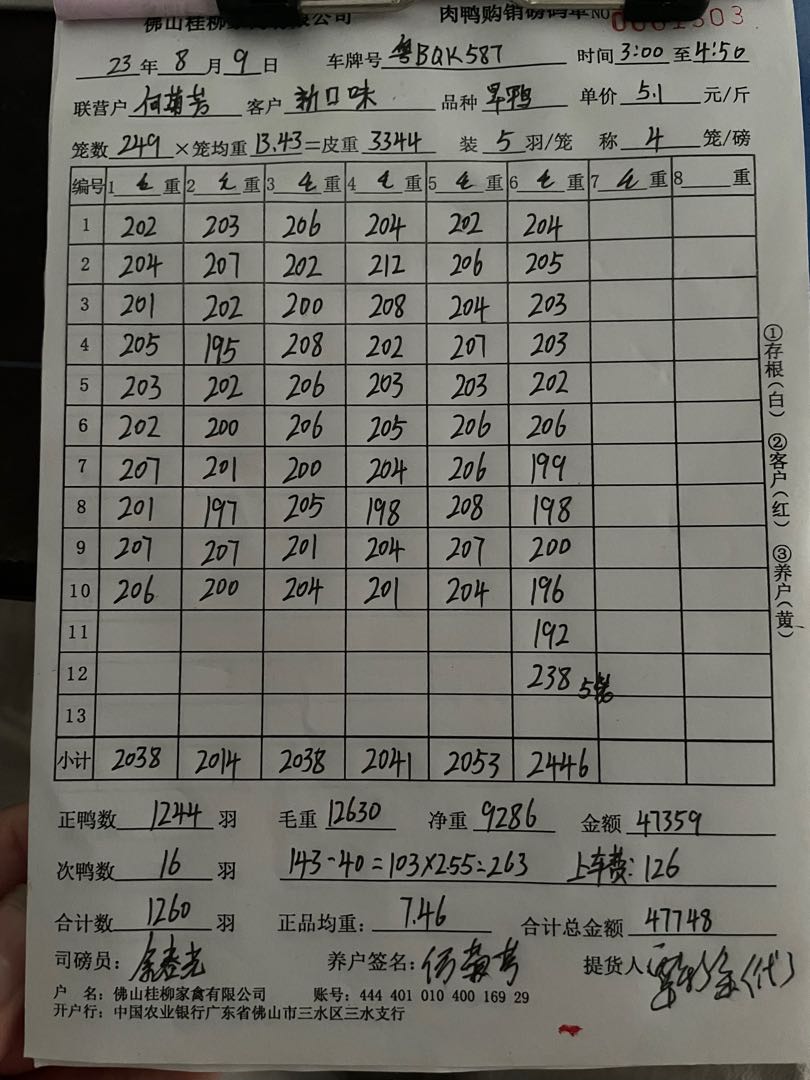 佛山桂柳家禽有限公司 肉鸭购销磅码单 NO 0001303
23年8月9日 车牌号 粤BQK587 时间3:00至4:50
联营户 何菊芳 客户 新口味 品种 旱鸭 单价 5.1 元/斤
笼数 249 ×笼均重 13.43 =皮重 3344 装 5 羽/笼 称 4 笼/磅
编号 1 毛 重 2 毛 重 3 毛 重 4 毛 重 5 毛 重 6 毛 重 7 毛 重 8 重
1 202 203 206 204 202 204
2 204 207 202 212 206 205
3 201 202 200 208 204 203
4 205 195 208 202 207 203
5 203 202 206 203 203 202
6 202 200 206 205 206 206
7 207 201 200 204 206 199
8 201 197 205 198 208 198
9 207 207 201 204 207 200
10 206 200 204 201 204 196
11 192
12 238 5笼
13
小计 2038 2014 2038 2041 2053 2446
正鸭数 1244 羽 毛重 12630 净重 9286 金额 47359
次鸭数 16 羽 143-40=103×255=263 上车费:126
合计数 1260 羽 正品均重: 7.46 合计总金额 47748
司磅员: 养户签名: 何菊芳 提货人 (代)
户 名: 佛山桂柳家禽有限公司 账号: 444 401 010 400 169 29
开户行: 中国农业银行广东省佛山市三水区三水支行
①存根(白) ②客户(红) ③养户(黄)